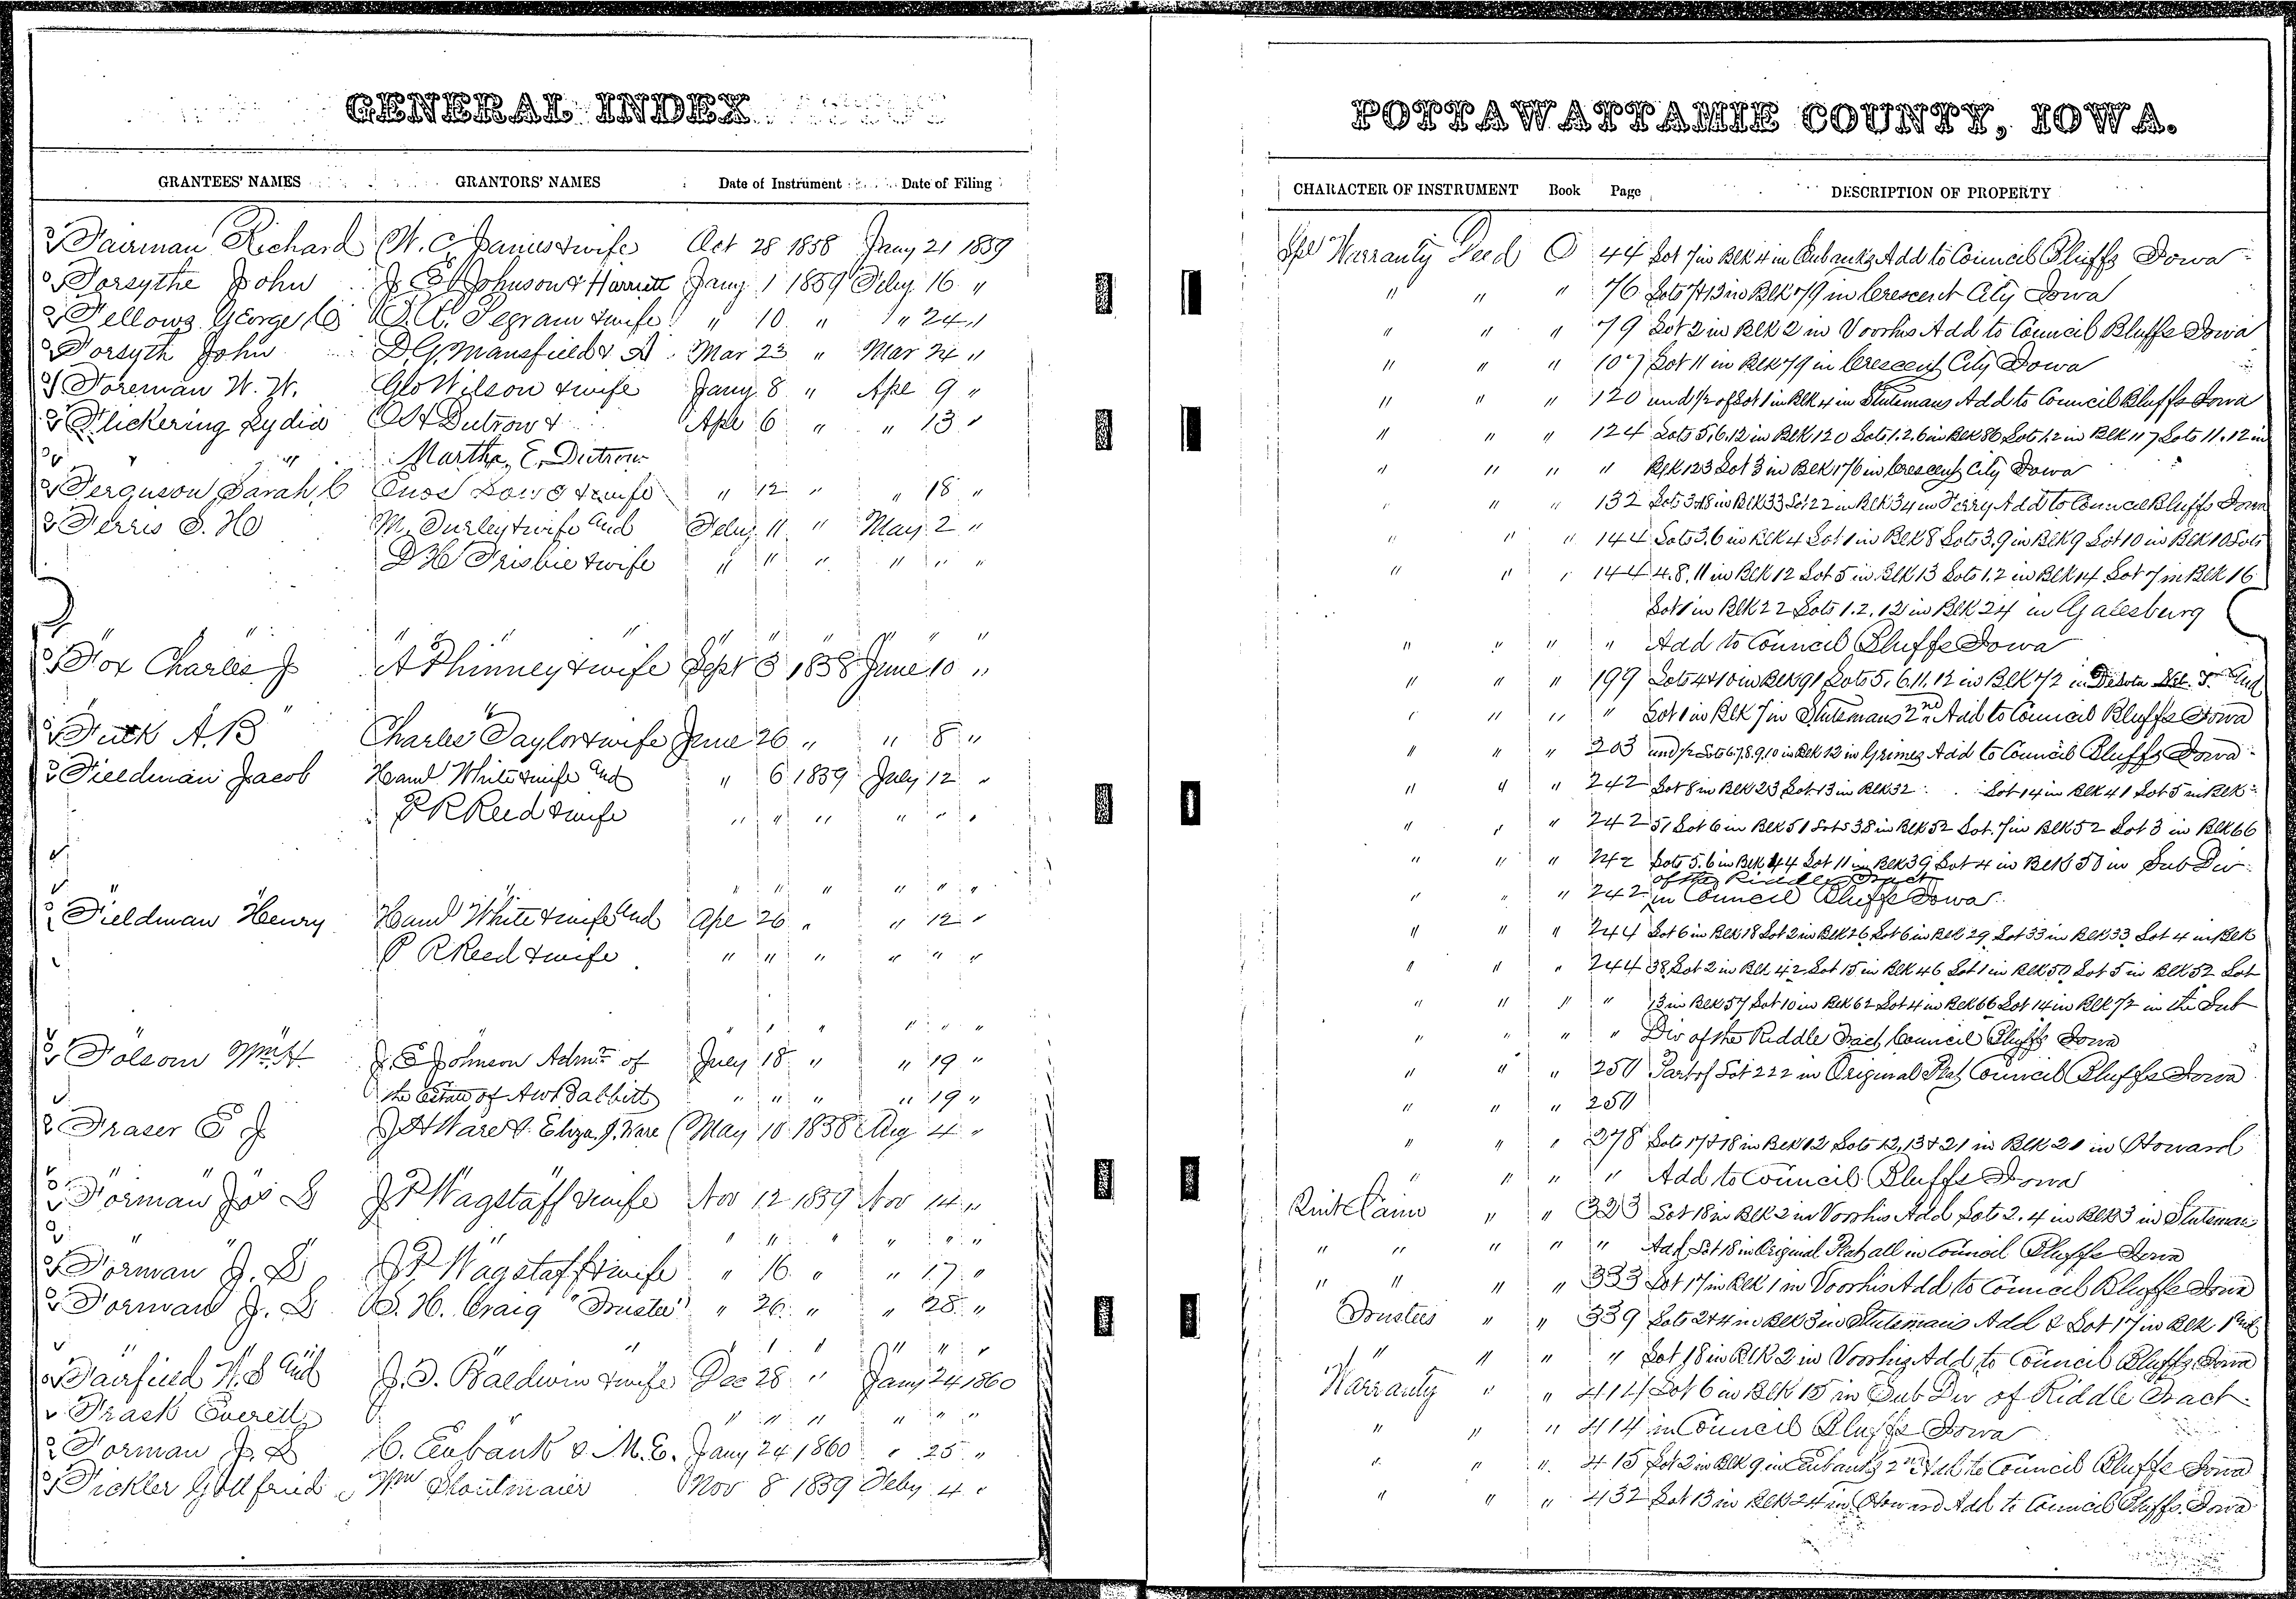 GENERAL INDEX
GRANTEES' NAMES GRANTORS' NAMES Date of Instrument Date of Filing
Fairman Richard W. C. James & wife Oct 28 1858 Jany 21 1859
Forsythe John J E Johnson & Harriett Jany 1 1859 Feby 16 "
Fellows George C. A. Pegram & wife " 10 " " 24 "
Forsyth John D. G. Mansfield & Mar 23 " Mar 24 "
Foreman W. W. Geo Wilson & wife Jany 8 " Apl 9 "
Flickering Lydia Dutrow & Apl 6 " " 13 "
" " Martha, E. Dutrow
Ferguson Sarah C Enos Lowe & wife " 12 " " 18 "
Ferris S. H. M. Durley & wife and Feby 11 " May 2 "
D H Frisbie & wife " " " " " "
" " " " " " " " "
Fox Charles J A Phinney & wife Sept 3 1858 June 10 "
" "
A. B Charles Taylor & wife June 26 " " 8 "
Fieldman Jacob White & wife and " 6 1859 July 12 "
P R Reed & wife " " " " " "
" " " " " " " "
Fieldman Henry White & wife and Apl 26 " " 12 "
P R Reed & wife " " " " " "
" " " " " "
Folsom Wm H. J. E Johnson Admr of July 18 " " 19 "
the Estate of A W Babbitt " " " " 19 "
Fraser E J J H Ware & Eliza J. Ware May 10 1858 Aug 4 "
" " " "
Forman Jos S J P Wagstaff & wife Nov 12 1859 Nov 14 "
" " " " " " " " "
Forman J. S. J P. Wagstaff & wife " 16 " " 17 "
Forman J. S S. H. Craig "Trustee" " 26 " " 28 "
" " " " " " " "
Fairfield W. S and J. T. Baldwin & wife Dec 28 " Jany 24 1860
Frask Everett " " " " " "
Forman J. S C. Eubank & M. E. Jany 24 1860 " 25 "
Fickler Gottfried Wm Stoutmaier Nov 8 1859 Feby 4 "
POTTAWATTAMIE COUNTY, IOWA.
CHARACTER OF INSTRUMENT Book Page DESCRIPTION OF PROPERTY
Spl Warranty Deed C 44 Lot 7 in Blk 4 in Eubanks Add to Council Bluffs Iowa
" " " 76 Lots 7 & 13 in Blk 79 in Crescent City Iowa
" " " 79 Lot 2 in Blk 2 in Voorhis Add to Council Bluffs Iowa
" " " 107 Lot 11 in Blk 79 in Crescent City Iowa
" " " 120 und 1/2 of Lot 1 in Blk 4 in Stutsmans Add to Council Bluffs Iowa
" " " 124 Lots 5,6,12 in Blk 120 Lots 1.2.6 in Blk 86 Lots 1.2 in Blk 117 Lots 11.12 in
" " " " Blk 123 Lot 3 in Blk 176 in Crescent City Iowa
" " " 132 Lots 3&8 in Blk 33 Lot 22 in Blk 34 in Ferry Add to Council Bluffs Iowa
" " " 144 Lots 3,6 in Blk 4 Lot 1 in Blk 8 Lots 3,9 in Blk 9 Lot 10 in Blk 10 Lots
" " " 144 4.8.11 in Blk 12 Lot 5 in Blk 13 Lots 1.2 in Blk 14 Lot 7 in Blk 16
Lot 1 in Blk 22 Lots 1.2.12 in Blk 24 in Galesburg
" " " " Add to Council Bluffs Iowa
" " " 199 Lots 4&10 in Blk 91 Lots 5,6,11,12 in Blk 72 in and
" " " " Lot 1 in Blk 7 in Stutsmans 2nd Add to Council Bluffs Iowa
" " " 203 und 1/2 Lots 6.7.8.9.10 in Blk 12 in Grimes Add to Council Bluffs Iowa
" " " 242 Lot 8 in Blk 23 Lot 13 in Blk 32 Lot 14 in Blk 41 Lot 5 in Blk
" " " 242 51 Lot 6 in Blk 51 Lots 38 in Blk 52 Lot 7 in Blk 52 Lot 3 in Blk 66
" " " 242 Lots 5.6 in Blk 44 Lot 11 in Blk 39 Lot 4 in Blk 50 in Sub Div
of the Riddle Tract
" " " 242 in Council Bluffs Iowa
" " " 244 Lot 6 in Blk 18 Lot 2 in Blk 26 Lot 6 in Blk 29 Lot 33 in Blk 33 Lot 4 in Blk
" " " 244 38 Lot 2 in Blk 42 Lot 15 in Blk 46 Lot 1 in Blk 50 Lot 5 in Blk 52 Lot
" " " " 13 in Blk 57 Lot 10 in Blk 62 Lot 4 in Blk 66 Lot 14 in Blk 72 in the Sub
" " " " Div of the Riddle Tract Council Bluffs Iowa
" " " 250 Part of Lot 222 in Original Plat Council Bluffs Iowa
" " " 250
" " " 278 Lots 17&18 in Blk 12 Lots 12,13&21 in Blk 21 in Howard
" " " " Add to Council Bluffs Iowa
Quit Claim " " 323 Lot 18 in Blk 2 in Voorhis Add Lots 2.4 in Blk 3 in Stutsmans
" " " " " Add Lot 18 in Original Plat all in Council Bluffs Iowa
" " " " 333 Lot 17 in Blk 1 in Voorhis Add to Council Bluffs Iowa
Trustees " " 339 Lots 2&4 in Blk 3 in Stutsmans Add & Lot 17 in Blk 1 and
" " " " Lot 18 in Blk 2 in Voorhis Add to Council Bluffs Iowa
Warranty " " 414 Lot 6 in Blk 15 in Sub Div of Riddle Tract
" " " 414 in Council Bluffs Iowa
" " " 415 Lot 2 in Blk 9 in Eubanks 2nd Add to Council Bluffs Iowa
" " " 432 Lot 13 in Blk 24 in Howard Add to Council Bluffs Iowa